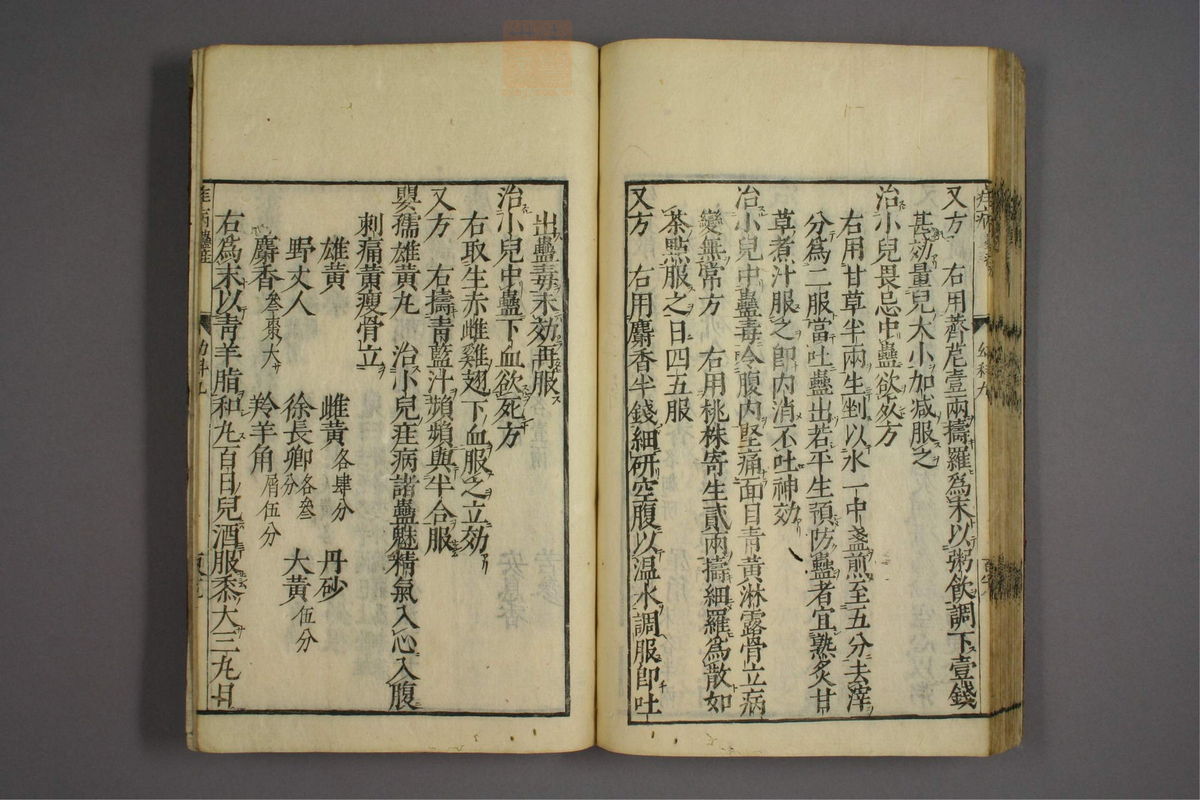 又方 右用薺苨壹兩擣羅爲末以粥飲調下壹錢
甚効量兒大小加减服之
治小兒畏忌中蠱欲死方
右用甘草半兩生剉以水一中盞煎至五分去滓
分爲二服當吐蠱出若平生預防蠱者宜熟炙甘
草煮汁服之卽内消不吐神効
治小兒中蠱毒令腹内堅痛面目靑黃淋露骨立病
變無常方 右用桃株寄生貳兩擣細羅爲散如
茶點服之日四五服
又方 右用麝香半錢細研空腹以温水調服卽吐
出蠱毒未効再服
治小兒中蠱下血欲死方
右取生赤雌雞翅下血服之立効
又方 右擣靑藍汁頻頻與半合服
嬰孺雄黃丸 治小兒疰病諸蠱魅精氣入心入腹
刺痛黃瘦骨立
雄黃 雌黃各肆分 丹砂
野丈人 徐長卿各叄分 大黃伍分
麝香叄棗大 羚羊角屑伍分
右爲末以靑羊脂和丸百日兒酒服黍大三丸日
疰病蠱疰 幼科九